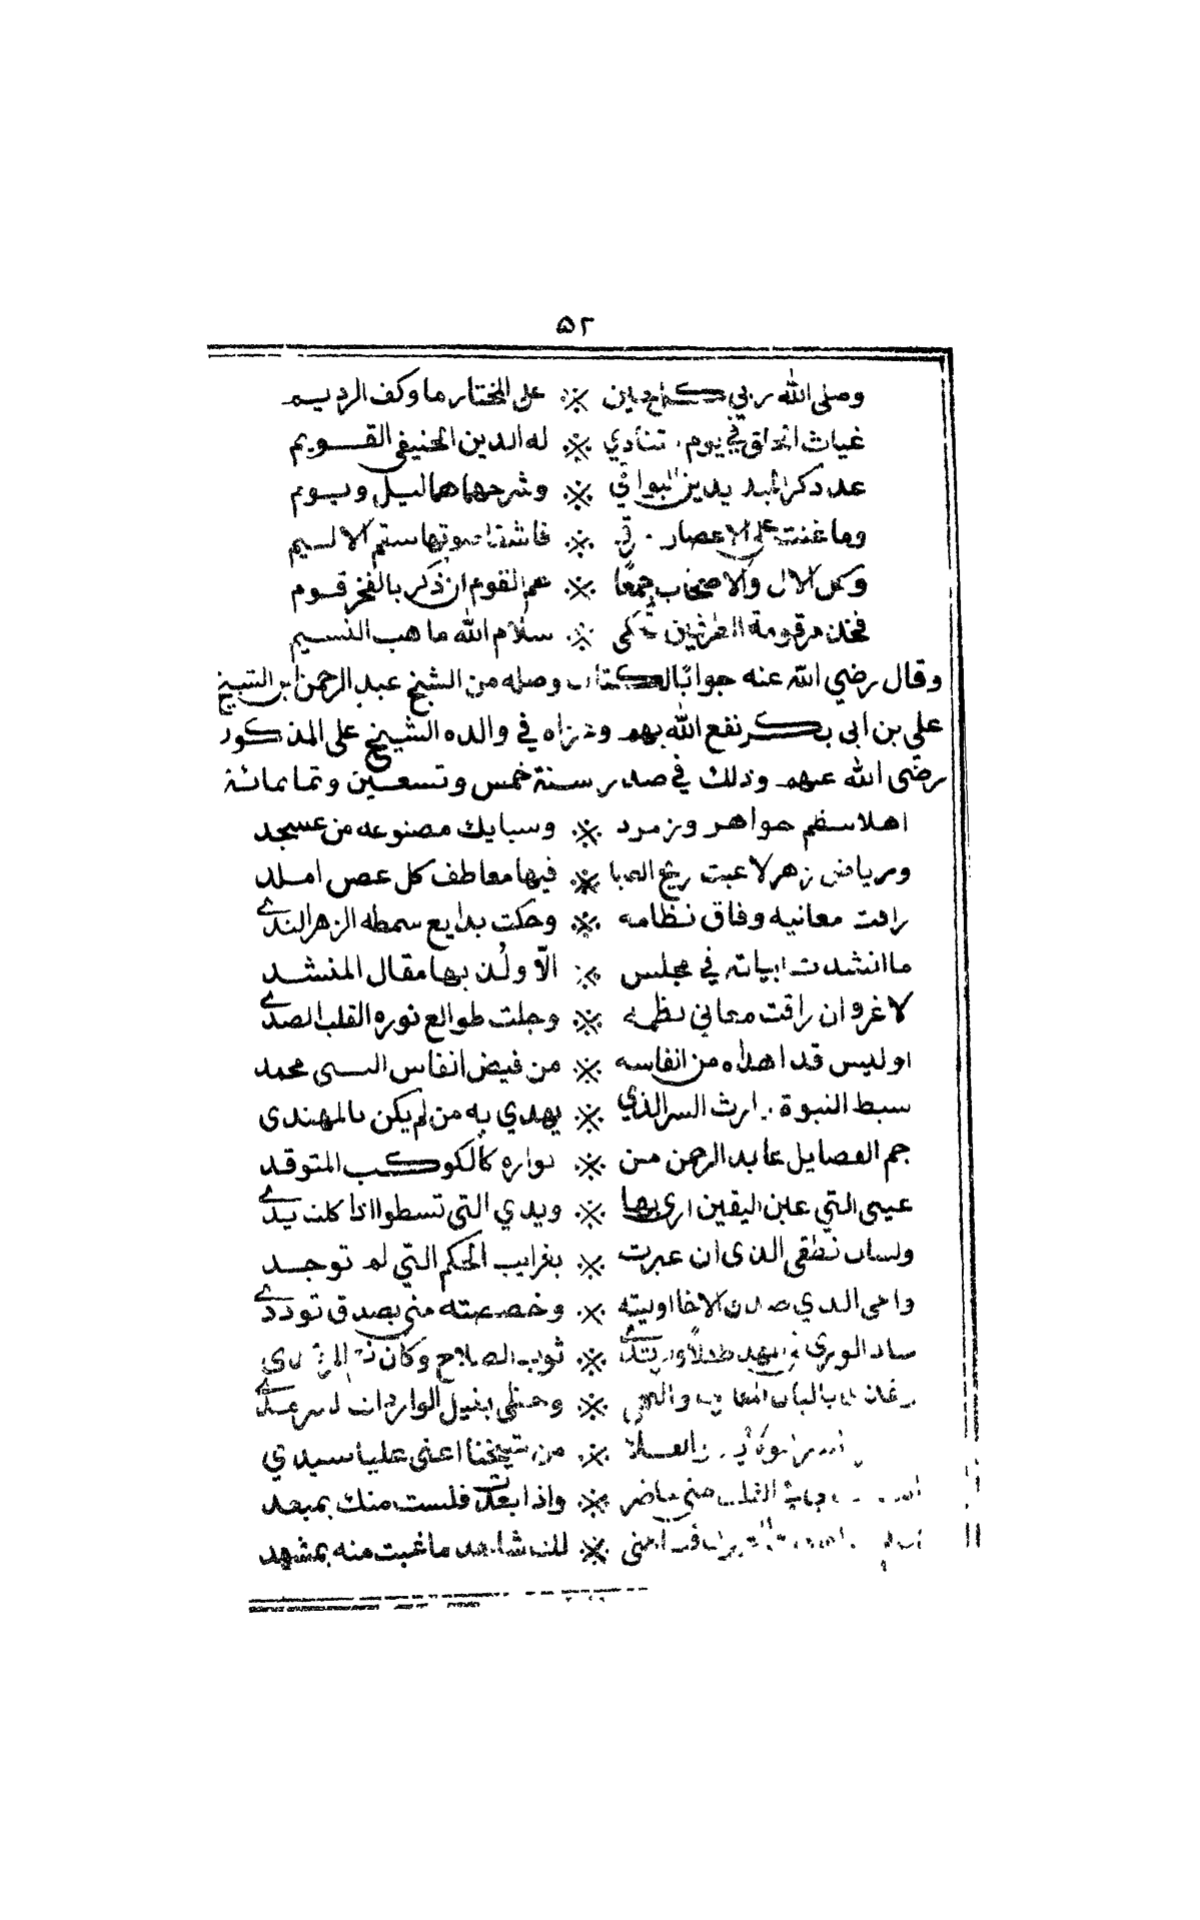 ٥٢
وصلى الله ربي كل حين ※ على المختار ما وكف الرديم
غياث الخلق في يوم تنادي ※ له الدين الحنيفي القويم
عد ذكر ※ وشرحهما هما ليل ويوم
وما غنت على الاعصار ※ ستم الاليم
وكل الال والاصحاب جمعًا ※ هم القوم ان ذكر بالفخر قوم
فخذ مرقومة الطرفين ※ سلام الله ما هب النسيم
وقال رضي الله عنه جوابًا لكتاب وصله من الشيخ عبد الرحمن ابن الشيخ
علي بن ابى بكر نفع الله بهم وعزاه في والده الشيخ على المذكور
رضى الله عنهم وذلك في صدر سنة خمس وتسعين وثمانمائة
اهلا بنظم جواهر وزمرد ※ وسبايك مصنوعه من عسجد
ورياض زهر لاعبت ريح الصبا ※ فيها معاطف كل غصن املد
راقت معانيه وفاق نظامه ※ وحكت بدايع سمطه الزهر الندي
ما انشدت ابياته في مجلس ※ الّا ولُذ بها مقال المنشد
لا غرو ان راقت معاني نظمه ※ وجلت طوالع نوره القلب الصدي
اوليس قد اهداه من انفاسه ※ من فيض انفاس النبى محمد
سبط النبوة وارث السر الذي ※ يهدي به من لم يكن بالمهتدى
جم الفضايل عابد الرحمن من ※ نواره كالكوكب المتوقد
عيني التي عين اليقين ارى بها ※ ويدي التى تسطوا اذا كلت يدي
ولسان نطقى الذى ان عبرت ※ بغرايب الحكم التي لم توجد
واخى الذي صدق الاخا اوليته ※ وخصصته منى بصدق توددي
ساد الورى في مهد طفلًا ويرتدي ※ ثوب الصلاح وكان
بالبان المعارف والتقى ※ وحظى بنيل الواردات
والعلا ※ من شيخنا اعنى عليا سيدي
القلب منى حاضر ※ واذا بعدت فلست منك بمبعد
※ لك شاهد ما غبت منه بمشهد